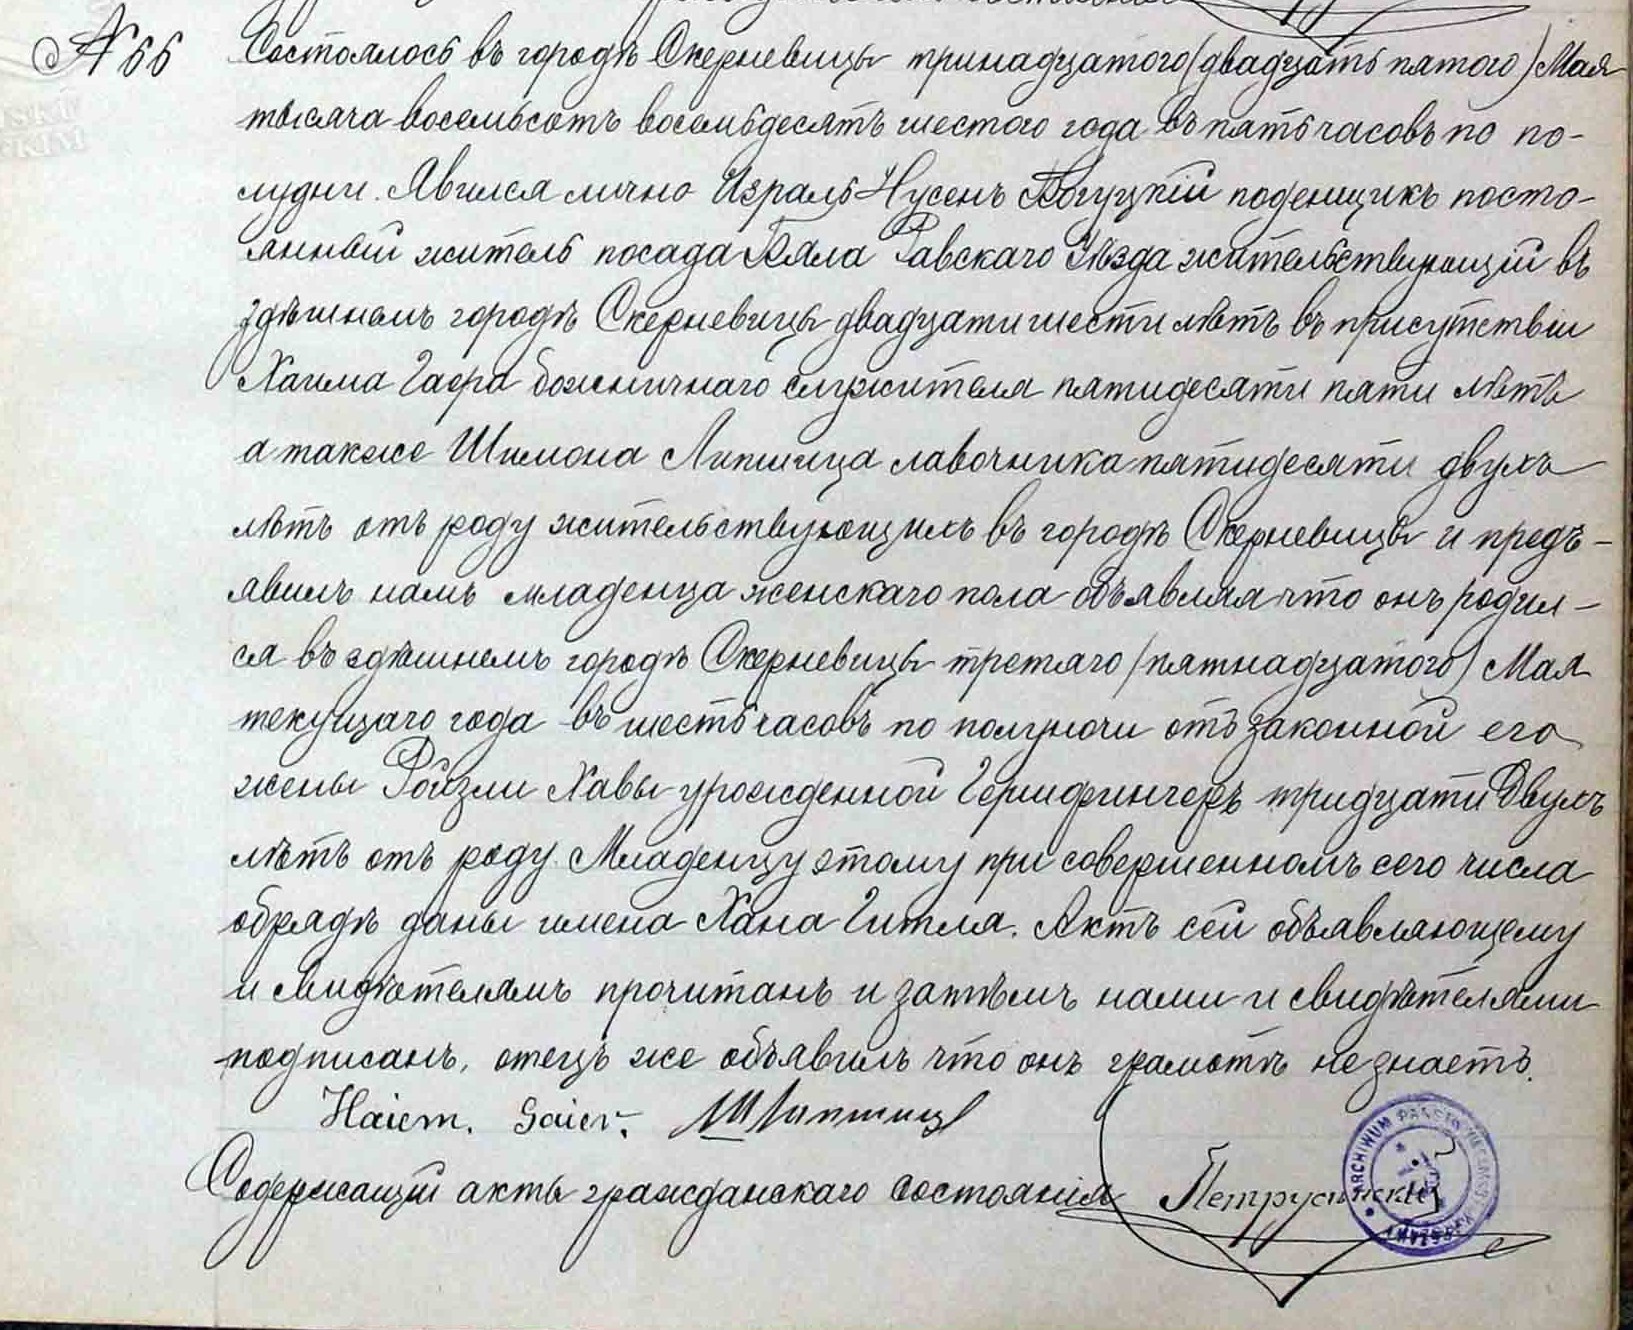 № 66
Состоялось въ городѣ Скерневицы тринадцатого (двадцать пятого) Мая
тысяча восемьсотъ восемьдесятъ шестого года въ пять часовъ по по-
лудни. Явился лично Израль Нусенъ Богуцкій поденщикъ посто-
янный житель посада Бяла Равскаго Уѣзда жительствующій въ
здѣшнемъ городѣ Скерневицы двадцати шести лѣтъ въ присутствіи
Хаима Гаера божничнаго служителя пятидесяти пяти лѣтъ
а также Шимона Липшица лавочника пятидесяти двухъ
лѣтъ отъ роду жительствующихъ въ городѣ Скерневицы и предъ-
явилъ намъ младенца женскаго пола объявляя что онъ родил-
ся въ здѣшнемъ городѣ Скерневицы третяго (пятнадцатого) Мая
текущаго года въ шесть часовъ по полуночи отъ законной его
жены Ройзли Хавы урожденной Гермфингеръ тридцати двухъ
лѣтъ отъ роду. Младенцу этому при совершенномъ сего числа
обрядѣ даны имена Хана Гитля. Актъ сей объявляющему
и свидѣтелямъ прочитанъ и затѣмъ нами и свидѣтелями
подписанъ, отецъ же объявилъ что онъ грамотѣ не знаетъ.
Haiem. Gaier. Ш Липшиц
Содержащій акты гражданскаго состоянія Петрусинскій
ARCHIWUM PAŃSTWOWE WARSZAWY